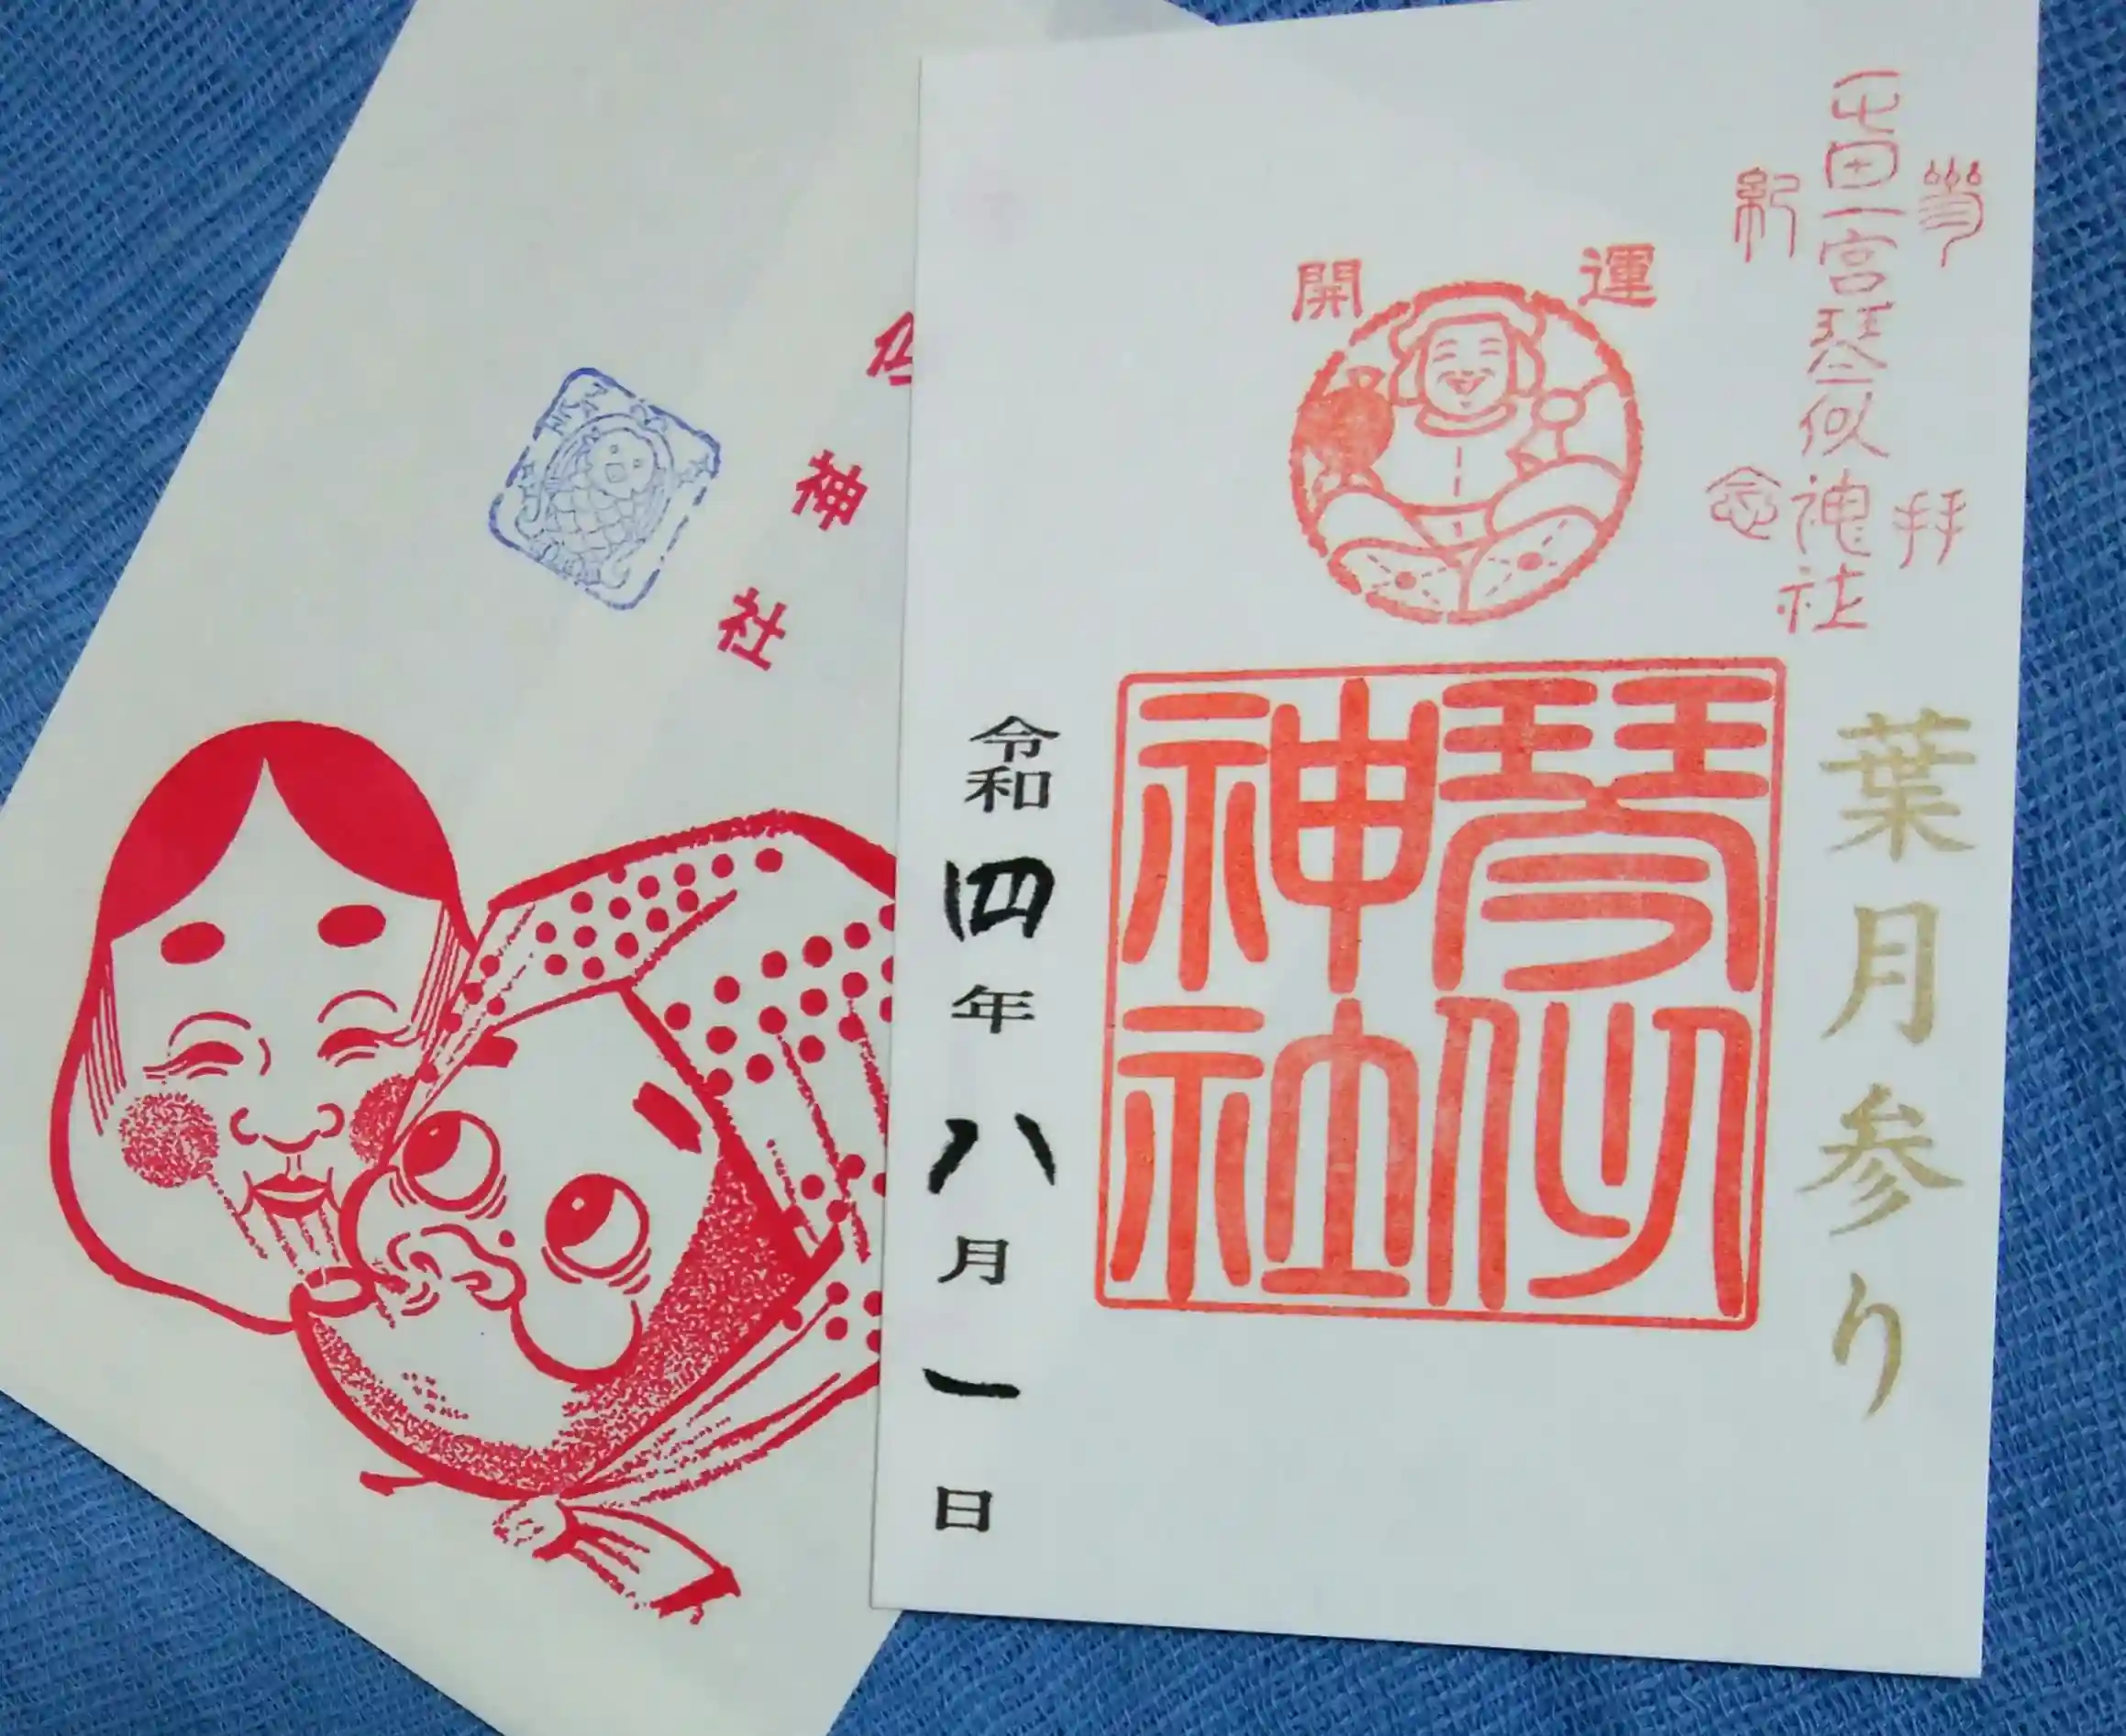 参拝
屯田一宮琴似神社
紀念
開運
葉月参り
琴似
神社
令和四年八月一日
神社